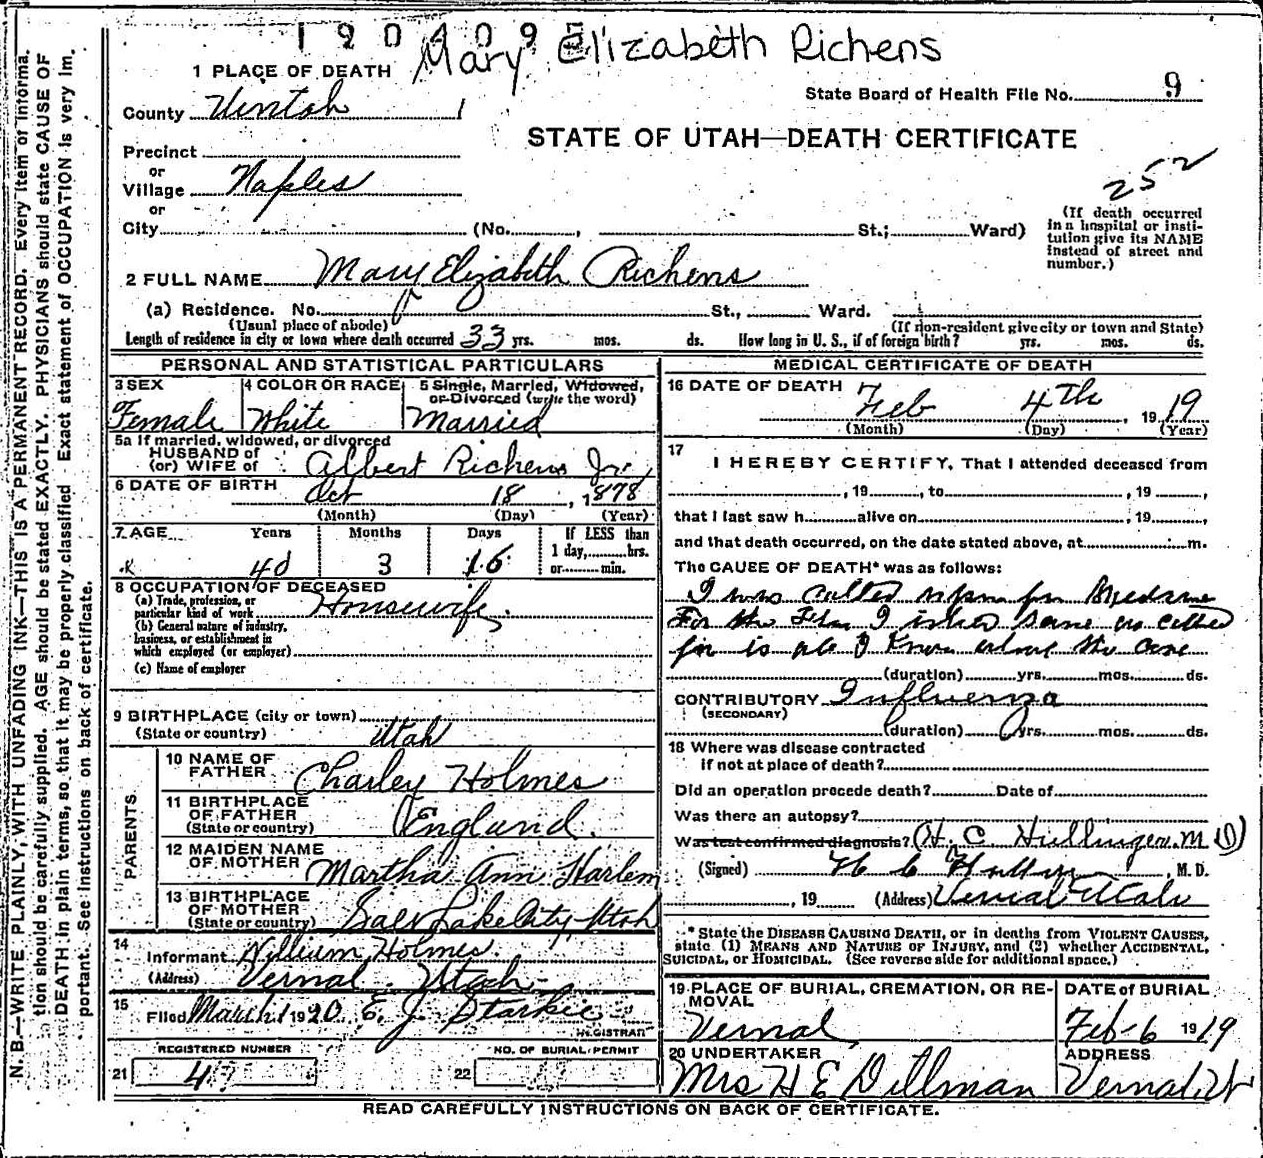 1904095
Mary Elizabeth Richens
1 PLACE OF DEATH
State Board of Health File No. 9
County Uintah
STATE OF UTAH—DEATH CERTIFICATE
Precinct
or
Village Naples
252
or
(If death occurred in a hospital or insti-
tution give its NAME
instead of street and
number.)
City (No. , St.; Ward)
2 FULL NAME Mary Elizabeth Richens
(a) Residence. No. St., Ward.
(Usual place of abode) (If non-resident give city or town and State)
Length of residence in city or town where death occurred 33 yrs. mos. ds. How long in U. S., if of foreign birth? yrs. mos. ds.
PERSONAL AND STATISTICAL PARTICULARS
3 SEX 4 COLOR OR RACE 5 Single, Married, Widowed,
or Divorced (write the word)
Female White Married
5a If married, widowed, or divorced
HUSBAND of
(or) WIFE of Albert Richens Jr.
6 DATE OF BIRTH Oct 18, 1878
(Month) (Day) (Year)
7 AGE Years Months Days If LESS than
1 day, hrs.
or min.
40 3 16
8 OCCUPATION OF DECEASED
(a) Trade, profession, or
particular kind of work Housewife.
(b) General nature of industry,
business, or establishment in
which employed (or employer)
(c) Name of employer
9 BIRTHPLACE (city or town)
(State or country) Utah
PARENTS
10 NAME OF
FATHER Charley Holmes
11 BIRTHPLACE
OF FATHER
(State or country) England.
12 MAIDEN NAME
OF MOTHER Martha Ann Harlem
13 BIRTHPLACE
OF MOTHER
(State or country) Salt Lake City, Utah
14
Informant William Holmes.
(Address) Vernal Utah
15
Filed March 1 1920 E. J. Starkie
REGISTRAR
REGISTERED NUMBER NO. OF BURIAL PERMIT
21 22
MEDICAL CERTIFICATE OF DEATH
16 DATE OF DEATH Feb 4th, 1919
(Month) (Day) (Year)
17
I HEREBY CERTIFY, That I attended deceased from
, 19 , to , 19 ,
that I last saw h alive on , 19 ,
and that death occurred, on the date stated above, at m.
The CAUSE OF DEATH* was as follows:
I was called upon for Medsame
For the Flu I
for is all I Know about the case
(duration) yrs. mos. ds.
CONTRIBUTORY Influenza
(SECONDARY)
(duration) yrs. mos. ds.
18 Where was disease contracted
if not at place of death?
Did an operation precede death? Date of
Was there an autopsy?
Was test confirmed diagnosis? (H. C Hullinger. M D)
(Signed) H C , M. D.
, 19 (Address) Vernal Utah
* State the DISEASE CAUSING DEATH, or in deaths from VIOLENT CAUSES,
state (1) MEANS AND NATURE OF INJURY, and (2) whether ACCIDENTAL,
SUICIDAL, or HOMICIDAL. (See reverse side for additional space.)
19 PLACE OF BURIAL, CREMATION, OR RE-
MOVAL
Vernal
DATE of BURIAL
Feb-6 1919
20 UNDERTAKER
Mrs H E Dillman
ADDRESS
Vernal, Ut
READ CAREFULLY INSTRUCTIONS ON BACK OF CERTIFICATE.
N. B.—WRITE PLAINLY, WITH UNFADING INK—THIS IS A PERMANENT RECORD. Every item of informa-
tion should be carefully supplied. AGE should be stated EXACTLY. PHYSICIANS should state CAUSE OF
DEATH in plain terms, so that it may be properly classified. Exact statement of OCCUPATION is very im-
portant. See instructions on back of certificate.